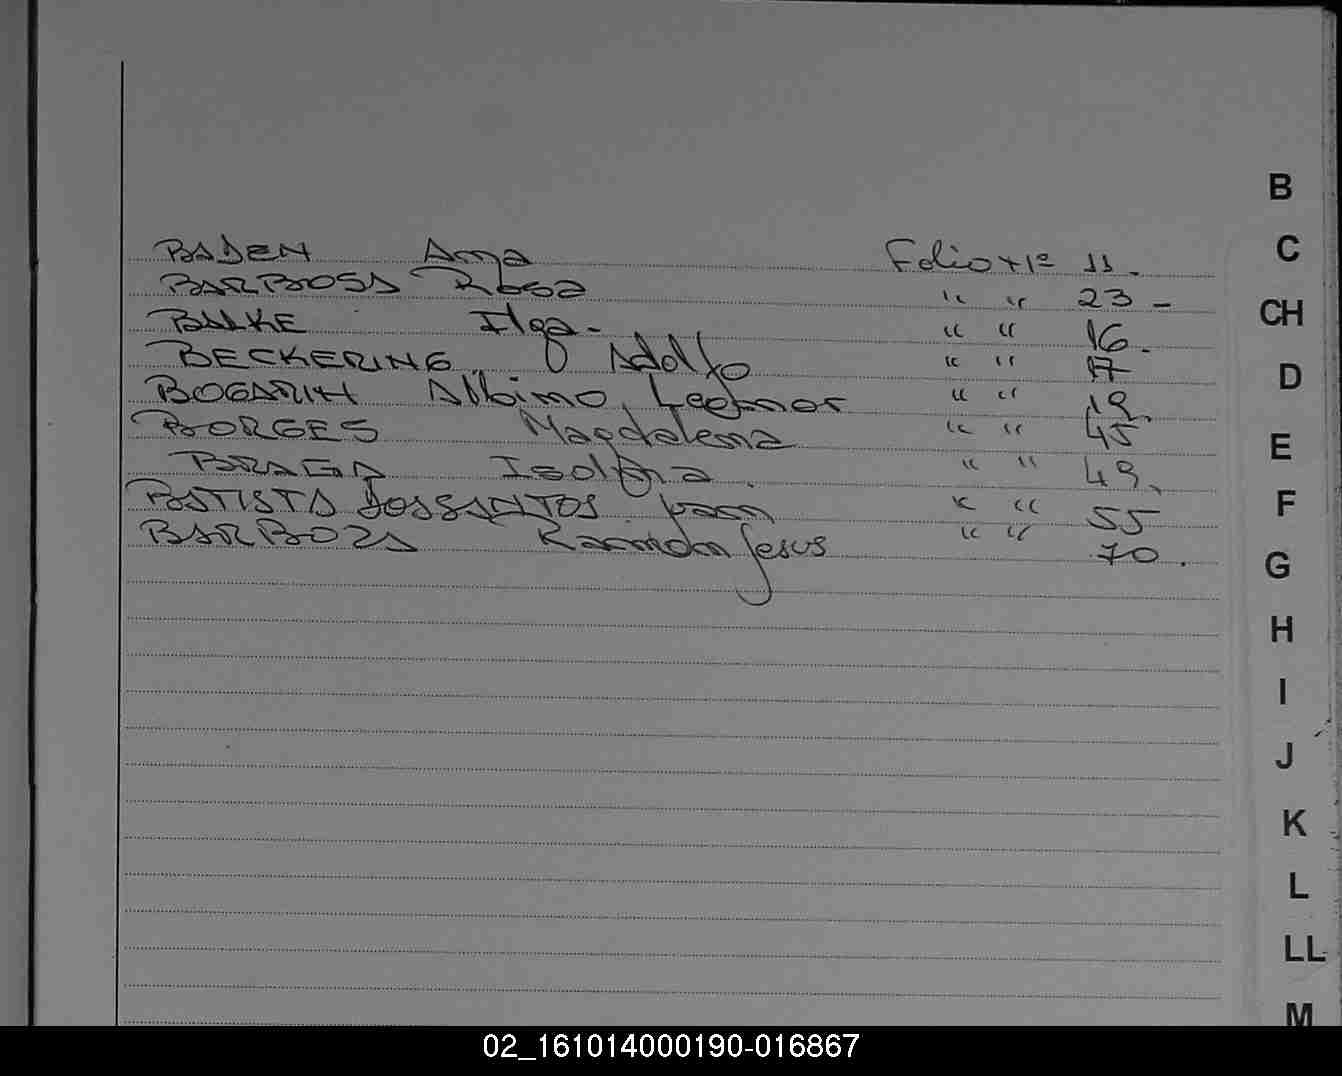 BADEN Ana Folio Nº 11.
BARBOSA Rosa " " 23 -
BALKE Ilga- " " 16.
BECKERING Adolfo " " 17
BOGARIN Albino Leonor " " 19.
BORGES Magdalena " " 45
BRAGA Isolina " " 49.
BATISTA DOSSANTOS Juan " " 55
BARBOZA Ramon Jesus " " 70.
B
C
CH
D
E
F
G
H
I
J
K
L
LL
M
02_161014000190-016867